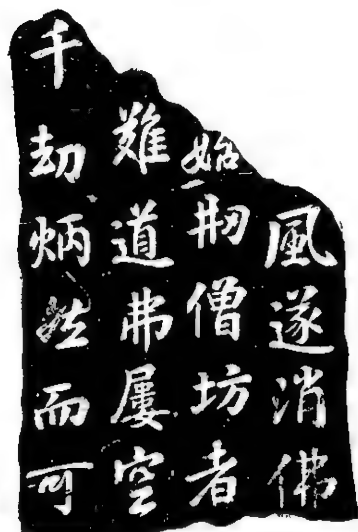 風遂消佛
始刱僧坊者
難道弗屢空
千劫炳然而可